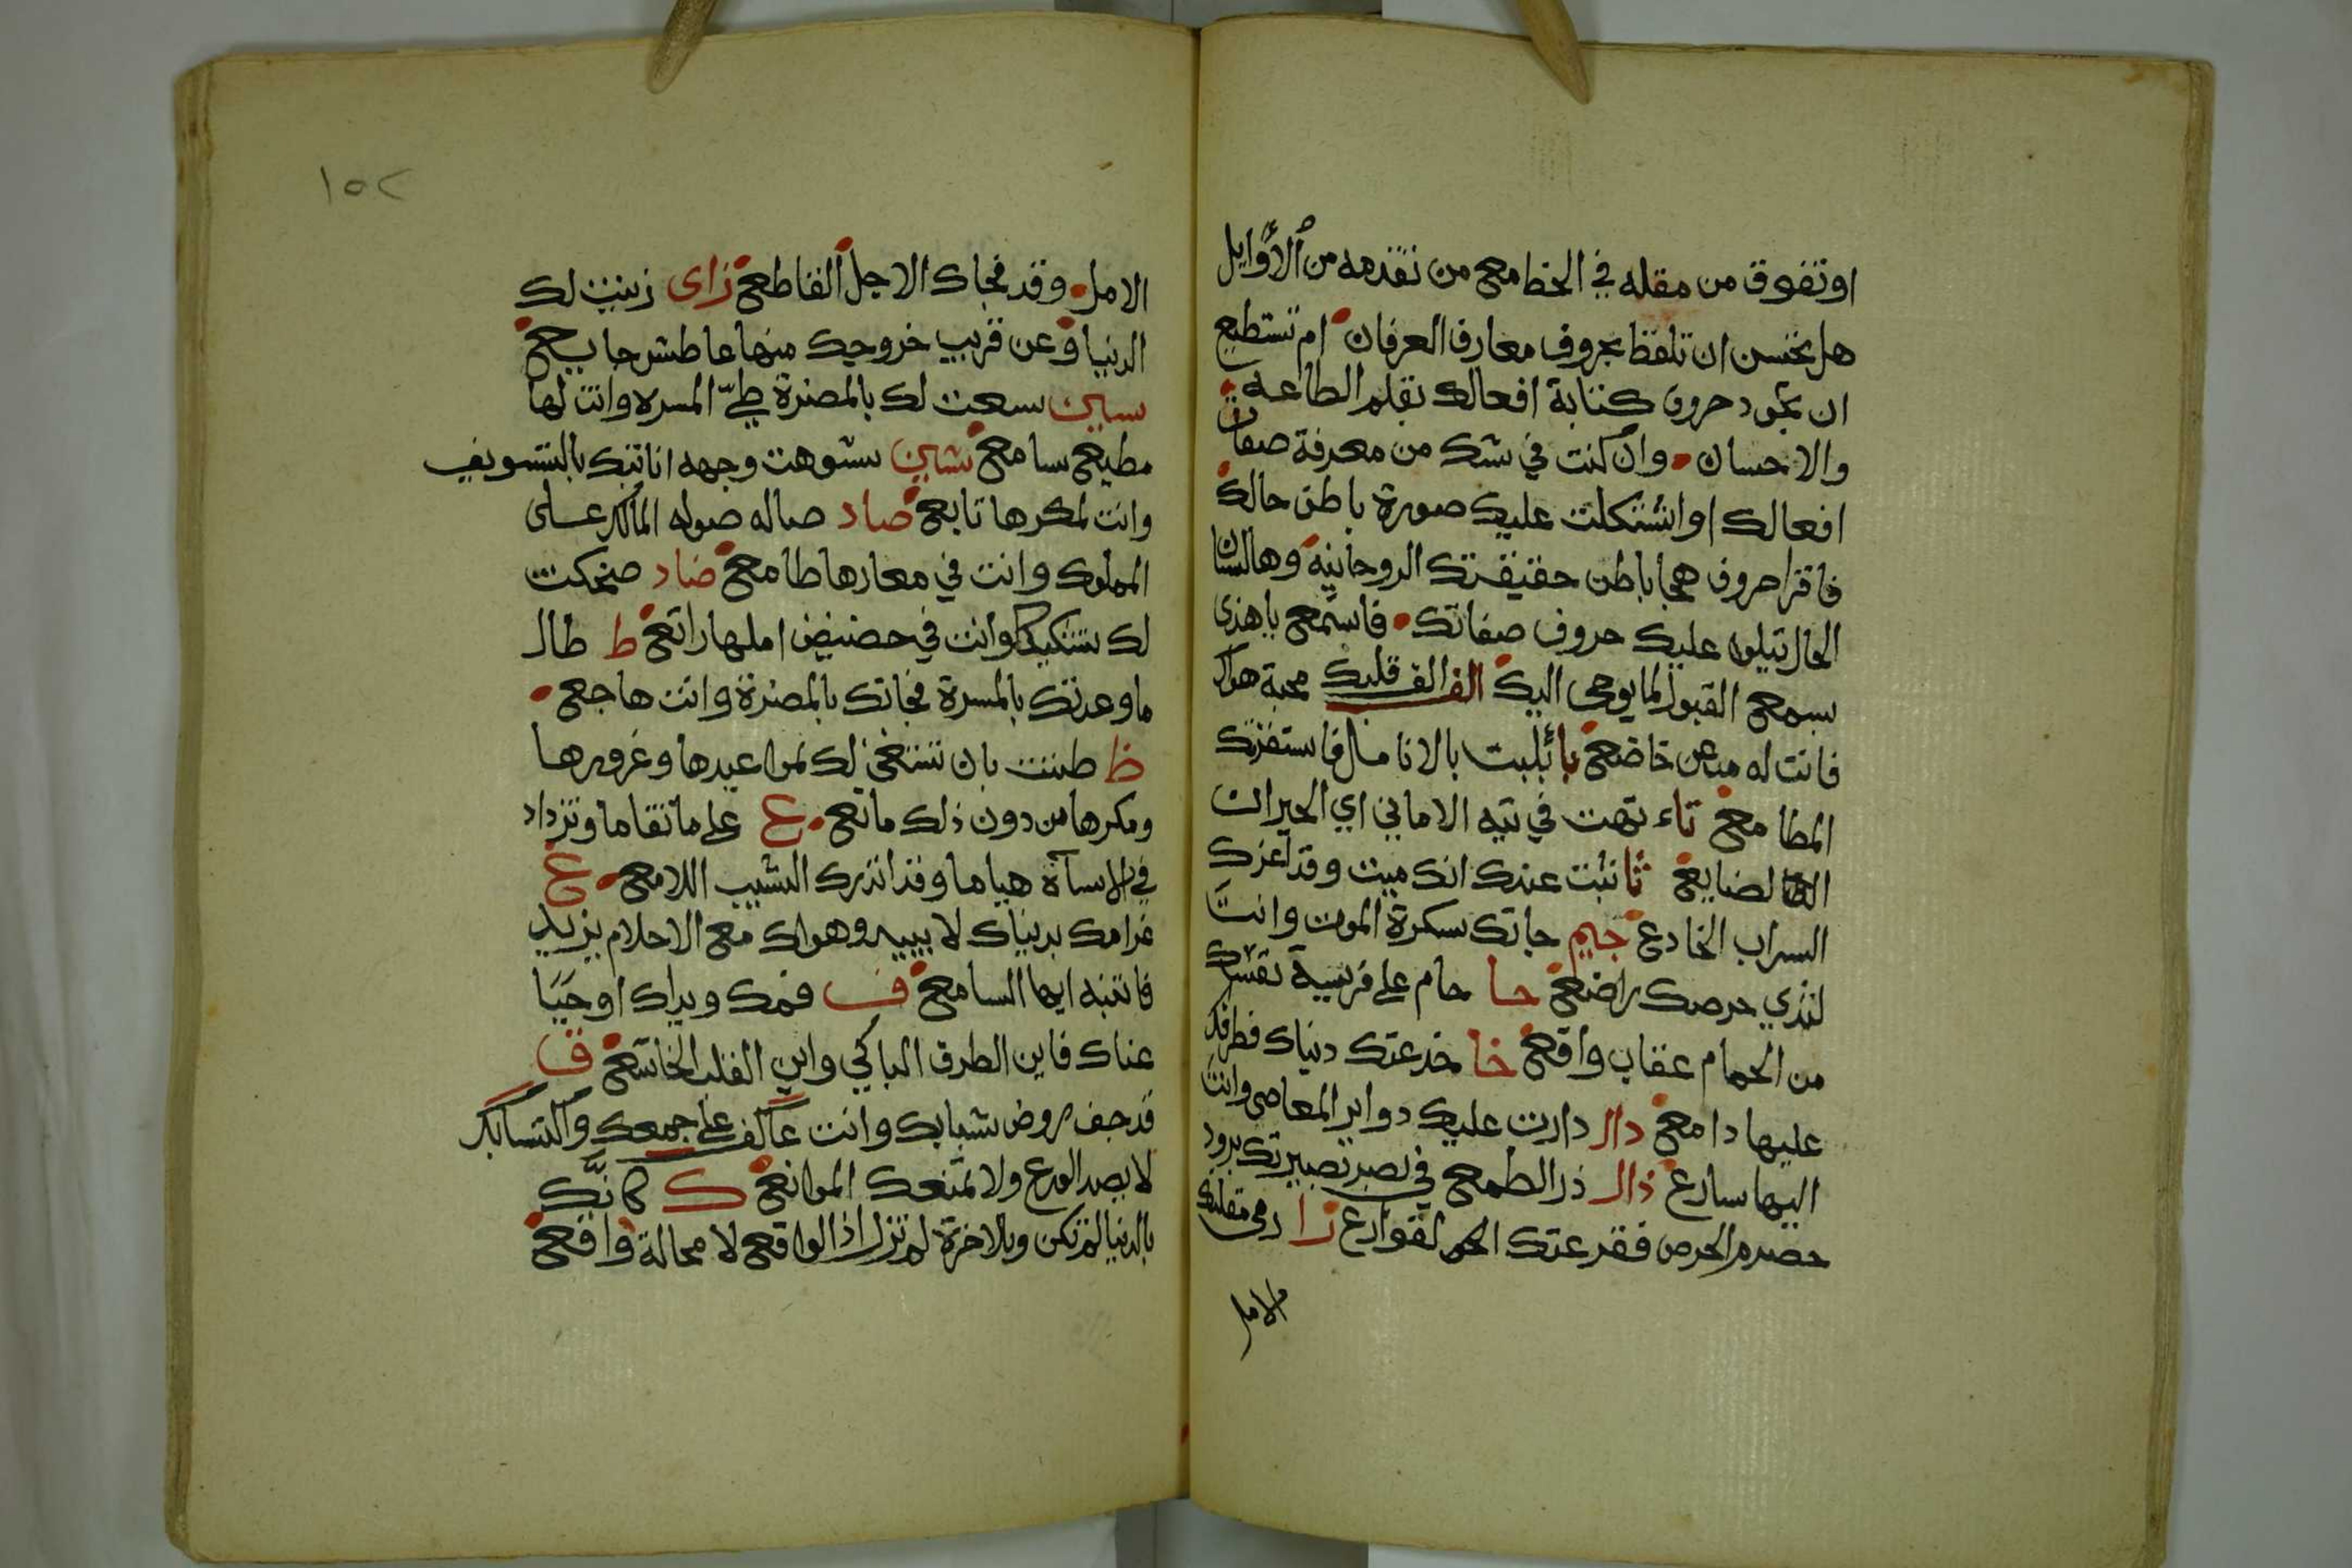 او تفوق من مقله في الخط مع من تقدمه من الأوايل
هل تحسن ان تلفظ بحروف معارف العرفان ام تستطيع
ان تجود حروف كتابة افعالك بقلم الطاعه
والاحسان وان كنت في شك من معرفة صفات
افعالك او اشتكلت عليك صورة باطن حالك
فاقرا حروف هجا باطن حقيقتك الروحانيه وها لسان
الحال تيلوا عليك حروف صفاتك فاستمع ياهذى
بسمع القبول لما يوحى اليك الف الف قلبك محبة هواك
فانت له خاضع با بليت بالانامال فاستفزك
المطامع تاء تهت في تيه الاماني اي الحيران
الضايع ثا ثبت عندك انك ميت وقد اغرك
السراب الخادع جيم جاتك سكرة الموت وانت
لثدي حرصك راضع حا حام على فريسة نفسك
من الحمام عقاب واقع خا خدعتك دنياك فطرفك
عليها دامع دال دارت عليك دواير المعاصى وانت
اليها سارع ذال ذر الطمع في
الحرص فقد عتك القوارع را رمى مقلتك
الامل
١٥٢
الامل وقد فجاك الاجل القاطع زاى زينت لك
الدنيا وعن قريب خروجك منها عاطش جايع
سين سعت لك بالمضرة طيّ المسره وانت لها
مطيع سامع شين شوهت وجهه اناتك بالتسويف
وانت لمكرها تابع صاد صاله صوله المالك على
المملوك وانت في معارها طامع ضاد ضحكت
لك وانت في حضيض املها راتع ط طال
ما وعدتك بالمسرة فجاتك بالمضرة وانت هاجع
ظ ظننت بان لك مواعيدها وغرورها
ومكرها من دون ذلك مانع ع على ما تقاما وتزداد
في الاساة هياما وقد انذرك الشيب اللامع غ
غرامك بدنياك لا يبيد وهواك مع الاحلام يزيد
فانتبه ايها السامع ف فمك ويداك او
عناك فاين الطرف الباكي واين القلب الخاشع ق
قد جف روض شبابك وانت عاكف على جمعك واكتسابك
لا يصد الورع ولا تمنعك الموانع ك كانّك
بالدنيا لم تكن وبالاخرة لم تزل اذا الواقع لا محالة واقع